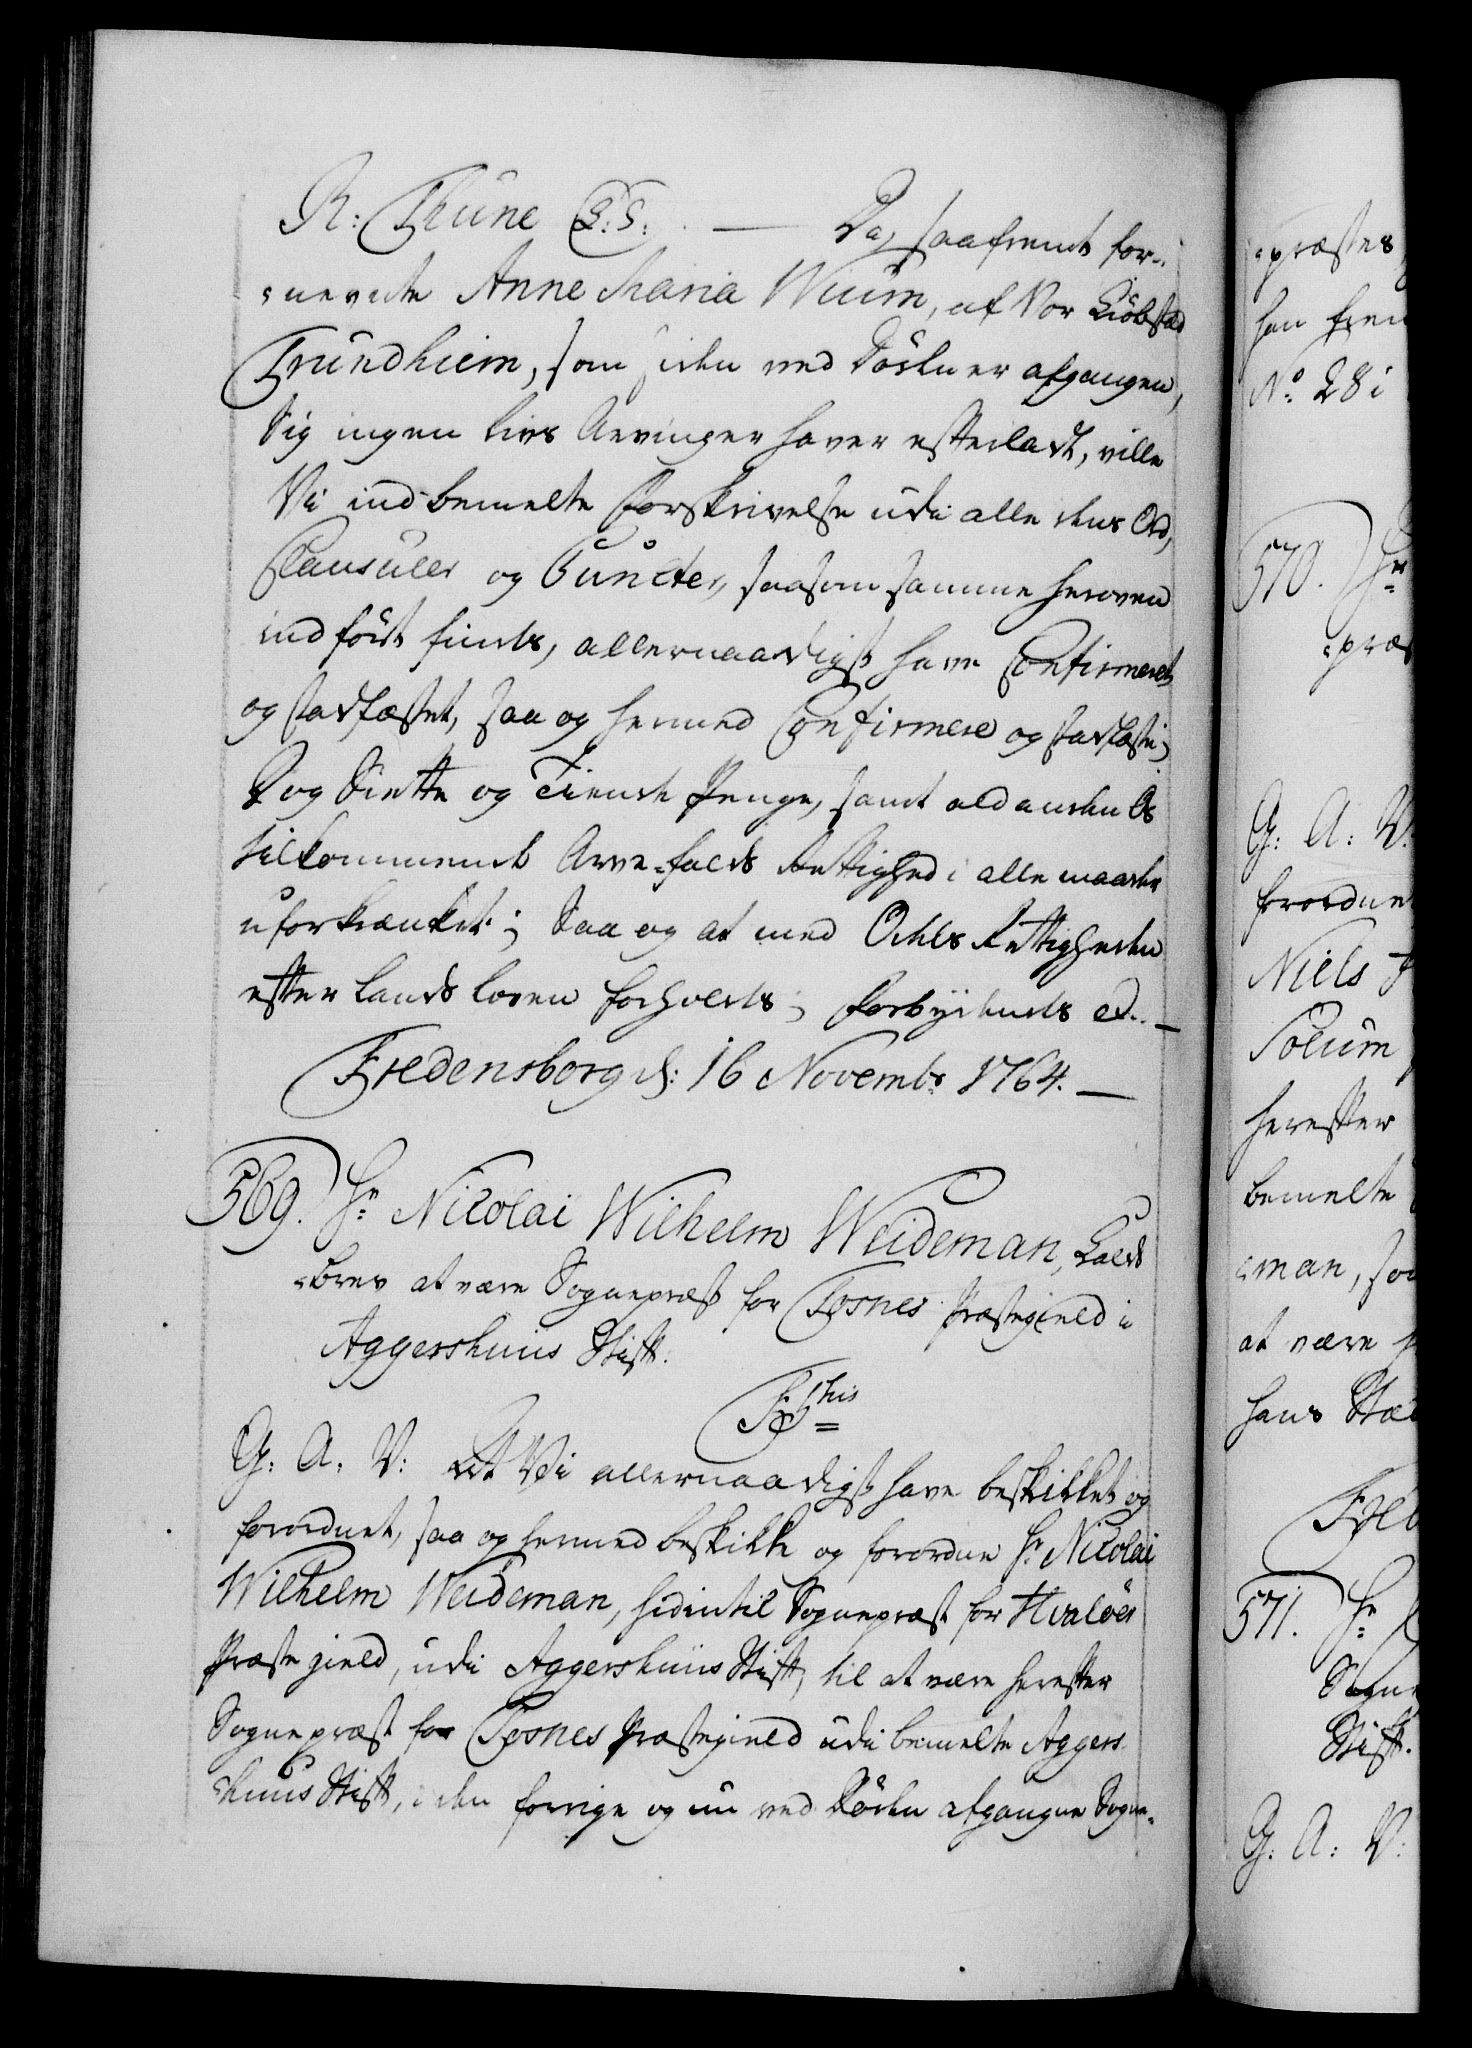 R: Thüne L: S: — Da, saafremt for-
-nevnte Anne Maria Wium, af Vor Kiöbstad
Trundhiem, som siden ved Döden er afgangen,
Sig ingen Livs Arvinger haver efterladt, ville
Vi ind bemelte Forskrivelse udi alle dens Ord,
Clausuler og Puncter, saasom samme heroven
indfört findes, allernaadigst have Confirmeret
og stadfæstet, saa og hermed Confirmere og stadfæste;
Dog Siette og Tiende Penge, samt ald anden Os
tilkommende Arve-falds Rettighed i alle maader
uforkrænket; Saa og at med Odels Rettigheden
efter Lands Loven forholdes; Forbydendes et. —
Fredensborg d: 16 Novembr. 1764. —
569. Hr Nicolai Wilhelm Weideman, Kalds
-brev at være Sognepræst for Tosnes Præstegield i
Aggershuus Stift.
Frhis
G: A: V: At Vi allernaadigst have beskikket og
forordnet, saa og hermed beskikke og forordne Hr Nicolai
Wilhelm Weideman, hidindtil Sognepræst for Hvalöer
Præstegield, udi Aggershuus Stift, til at være herefter
Sognepræst for Tosnes Præstegield udi bemelte Aggers-
-huus Stift, i den forrige og nu ved Döden afgangne Sogne-
-præstes
han frem
No. 28 i
570. Hr
-præs
G: A: V:
forordne
Niels
Solum
herefter
bemelte
-man, so
at være
hans Stæ
Fre
571. Hr
Sogne
Stift.
G: A: V: